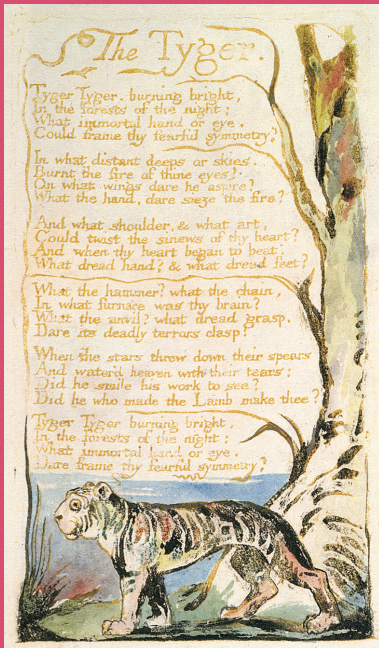 The Tyger.
Tyger Tyger. burning bright,
In the forests of the night:
What immortal hand or eye.
Could frame thy fearful symmetry?
In what distant deeps or skies.
Burnt the fire of thine eyes?
On what wings dare he aspire?
What the hand, dare sieze the fire?
And what shoulder, & what art,
Could twist the sinews of thy heart?
And when thy heart began to beat.
What dread hand? & what dread feet?
What the hammer? what the chain,
In what furnace was thy brain?
What the anvil? what dread grasp.
Dare its deadly terrors clasp?
When the stars threw down their spears
And water'd heaven with their tears:
Did he smile his work to see?
Did he who made the Lamb make thee?
Tyger Tyger burning bright,
In the forests of the night:
What immortal hand or eye.
Dare frame thy fearful symmetry?